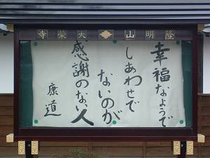 明山
榮寺
幸福なようで
しあわせで
ないのが
感謝のない人
康道